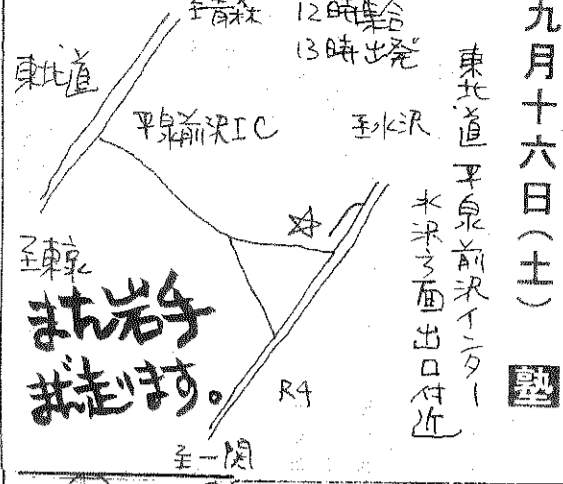 九月十六日(土)
塾
東北道 平泉前沢インター
水沢方面出口付近
至青森
12時集合
13時出発
東北道
平泉前沢IC
至水沢
至東京
また岩手
走ります。
R4
至一関